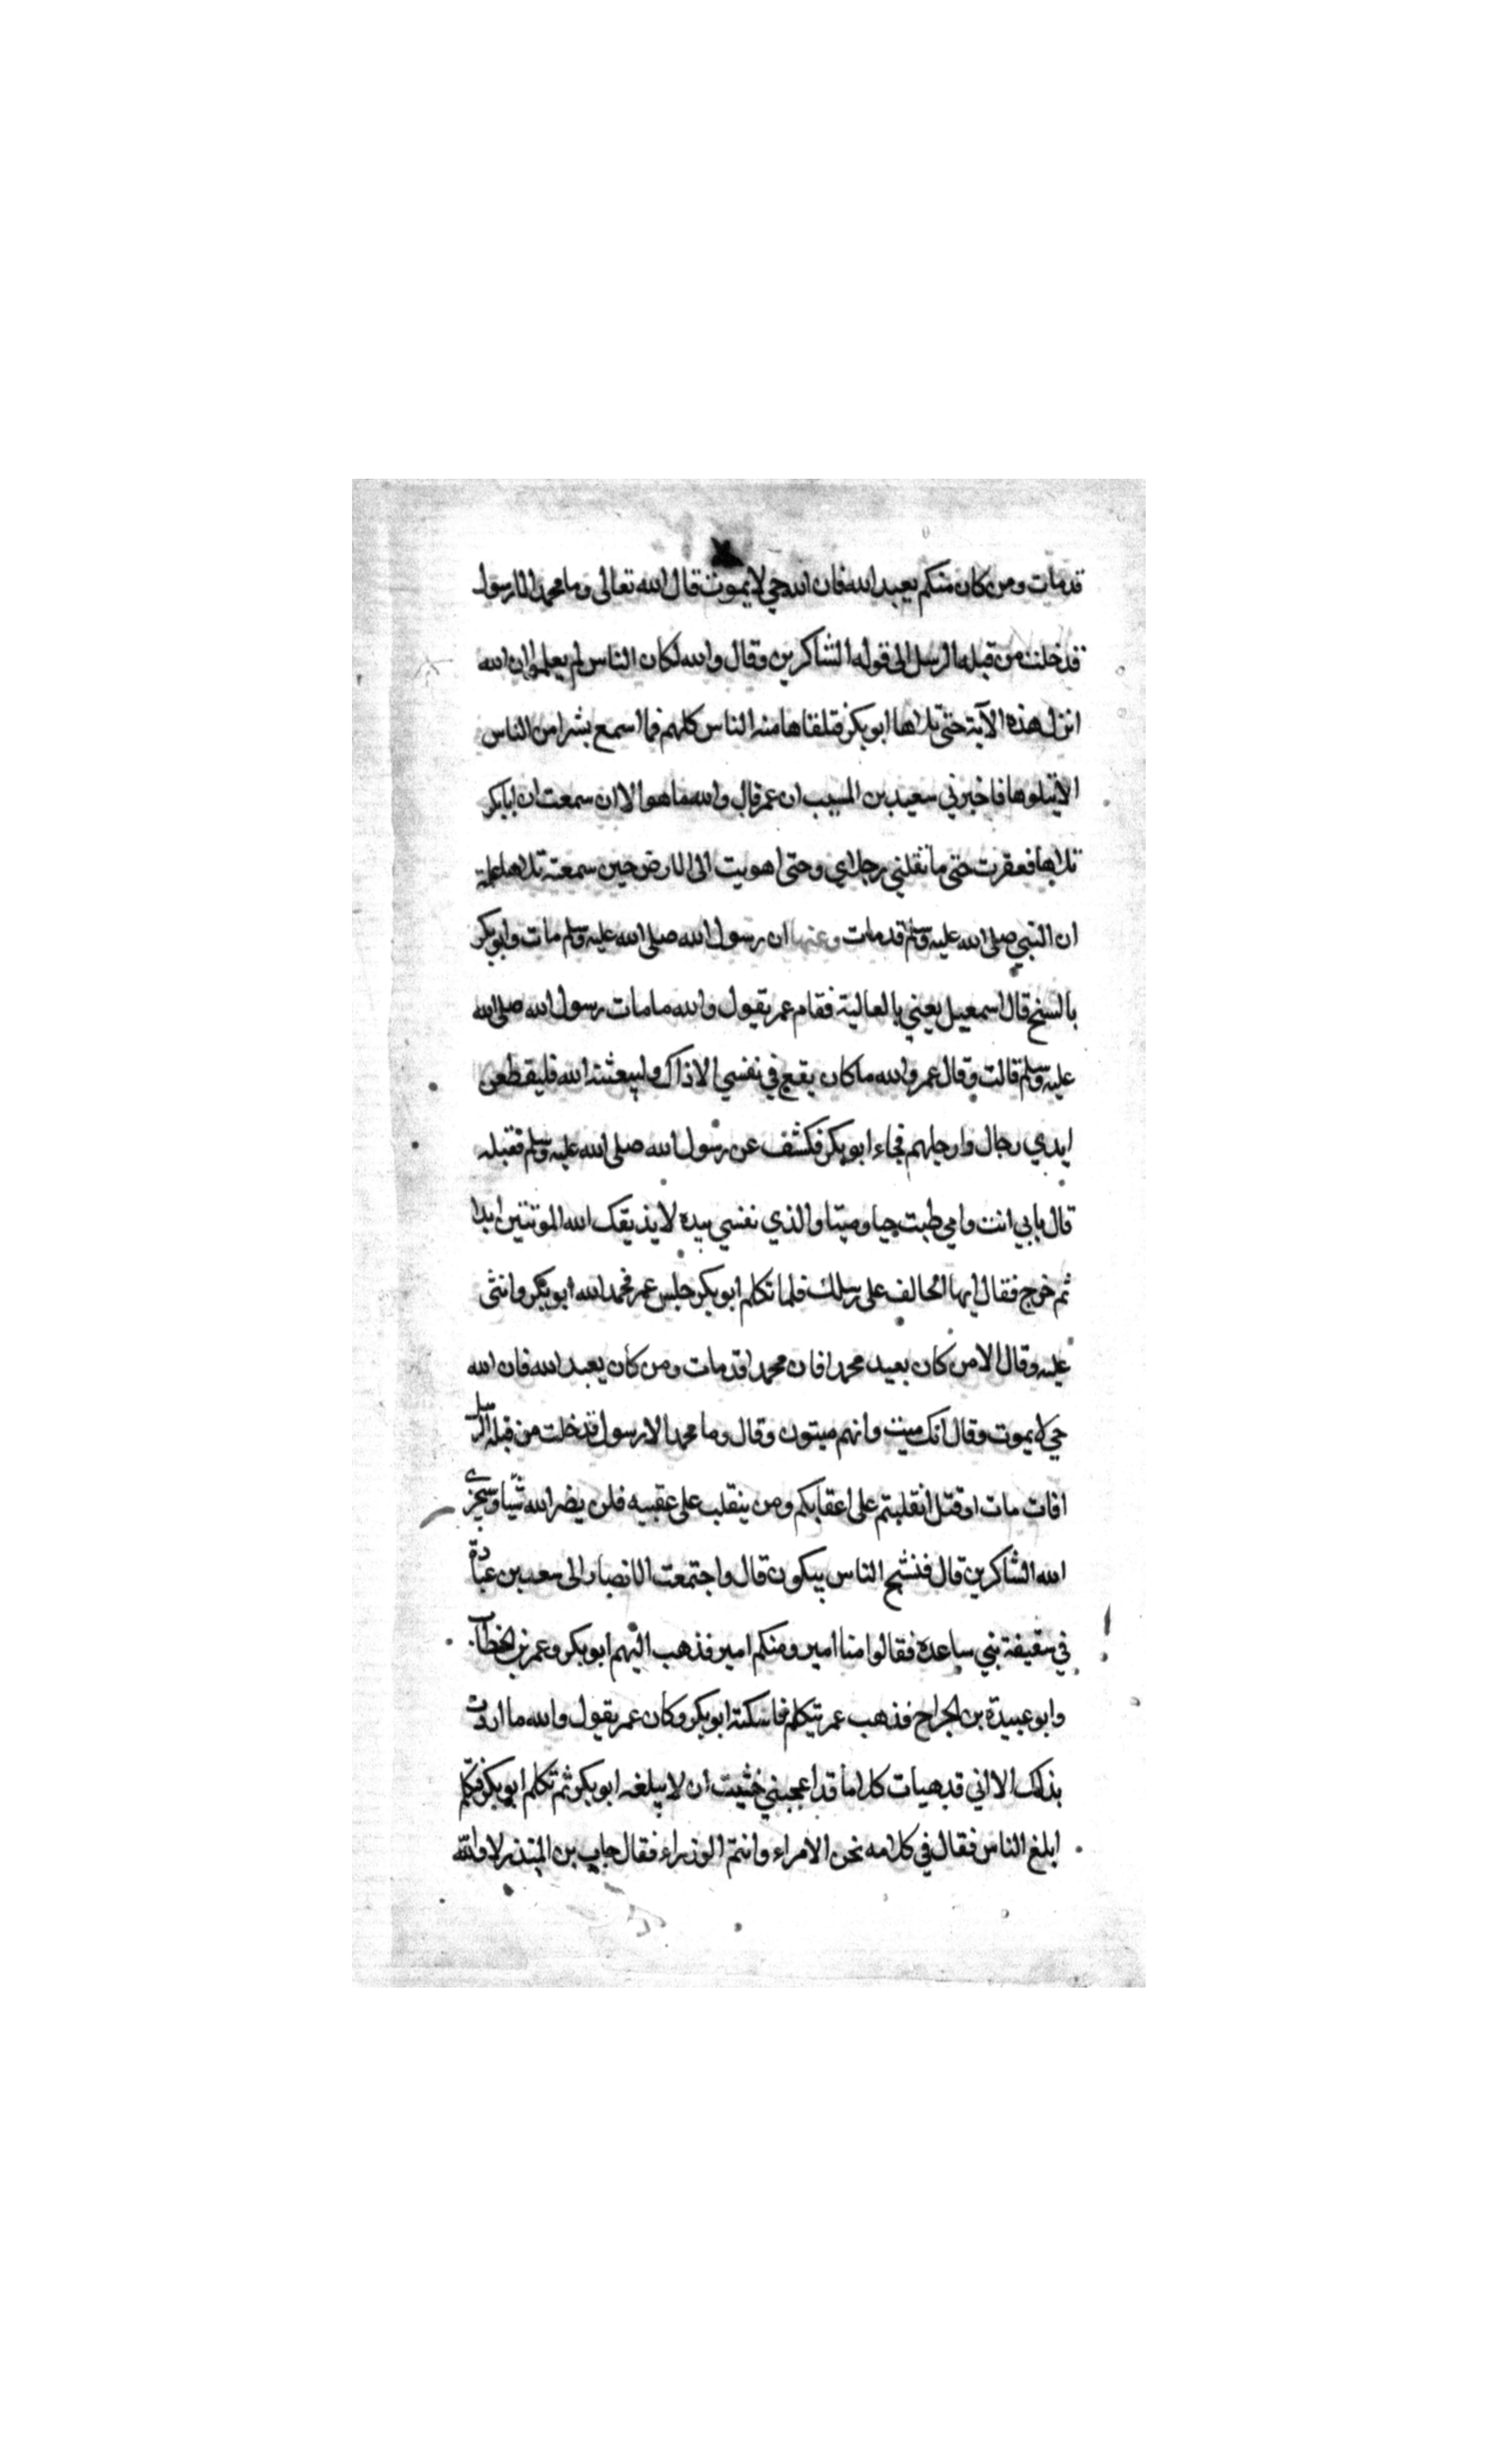 قد مات ومن كان منكم يعبد الله فان الله حي لا يموت قال الله تعالى وما محمد الا رسول
قد خلت من قبله الرسل الى قوله الشاكرين وقال والله لكان الناس لم يعلموا ان الله
انزل هذه الآية حتى تلاها ابو بكر فتلقاها منه الناس كلهم فما اسمع بشرا من الناس
الا يتلوها فاخبرني سعيد بن المسيب ان عمر قال والله ما هو الا ان سمعت ان ابا بكر
تلاها فعقرت حتى ما تقلني رجلاي وحتى اهويت الى الارض حين سمعته تلاها علمت
ان النبي صلى الله عليه وسلم قد مات وعنها ان رسول الله صلى الله عليه وسلم مات وابو بكر
بالسنح قال اسمعيل يعني بالعالية فقام عمر يقول والله ما مات رسول الله صلى الله
عليه وسلم قالت وقال عمر والله ما كان يقع في نفسي الا ذاك وليبعثنه الله فليقطعن
ايدي رجال وارجلهم فجاء ابو بكر فكشف عن رسول الله صلى الله عليه وسلم فقبله
قال بابي انت وامي طبت حيا وميتا والذي نفسي بيده لا يذيقك الله الموتتين ابدا
ثم خرج فقال ايها الحالف على رسلك فلما تكلم ابو بكر جلس عمر فحمد الله ابو بكر واثنى
عليه وقال الا من كان يعبد محمدا فان محمدا قد مات ومن كان يعبد الله فان الله
حي لا يموت وقال انك ميت وانهم ميتون وقال وما محمد الا رسول قد خلت من قبله الرسل
افات مات او قتل انقلبتم على اعقابكم ومن ينقلب على عقبيه فلن يضر الله شيا وسيجزي
الله الشاكرين قال فنشج الناس يبكون قال واجتمعت الانصار الى سعد بن عبادة
في سقيفة بني ساعدة فقالوا منا امير ومنكم امير فذهب اليهم ابو بكر وعمر بن الخطاب
وابو عبيدة بن الجراح فذهب عمر يتكلم فاسكته ابو بكر وكان عمر يقول والله ما اردت
بذلك الا اني قد هيات كلاما قد اعجبني خشيت ان لا يبلغه ابو بكر ثم تكلم ابو بكر فتكلم
ابلغ الناس فقال في كلامه نحن الامراء وانتم الوزراء فقال حباب بن المنذر لا والله